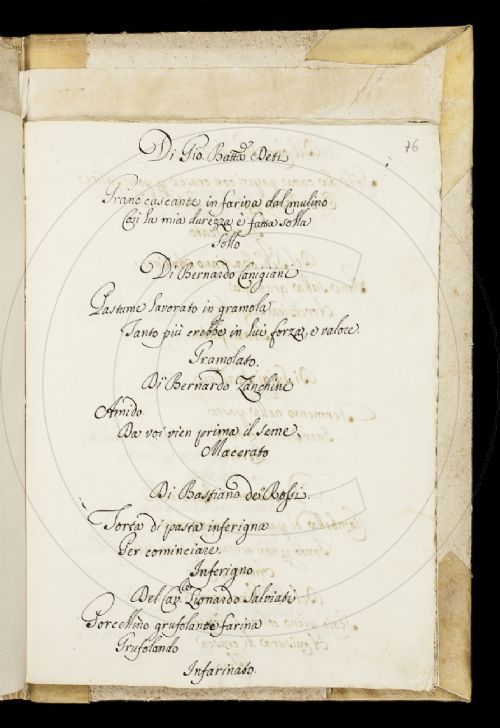 76
Di Gio. Batta Deti
Grano cascante in farina dal mulino
Così la mia durezza è fatta solla
Sollo
Di Bernardo Canigiani
Pastume lavorato in gramola
Tanto più crebbe in lui forza, e valore.
Gramolato.
Di Bernardo Zanchini
Amido
Da voi vien prima il seme
Macerato
Di Bastiano de' Rossi.
Torta di pasta inferigna
Per cominciare.
Inferigno
Del Cav. Lionardo Salviati
Porcellino grufolante farina
Grufolando
Infarinato.